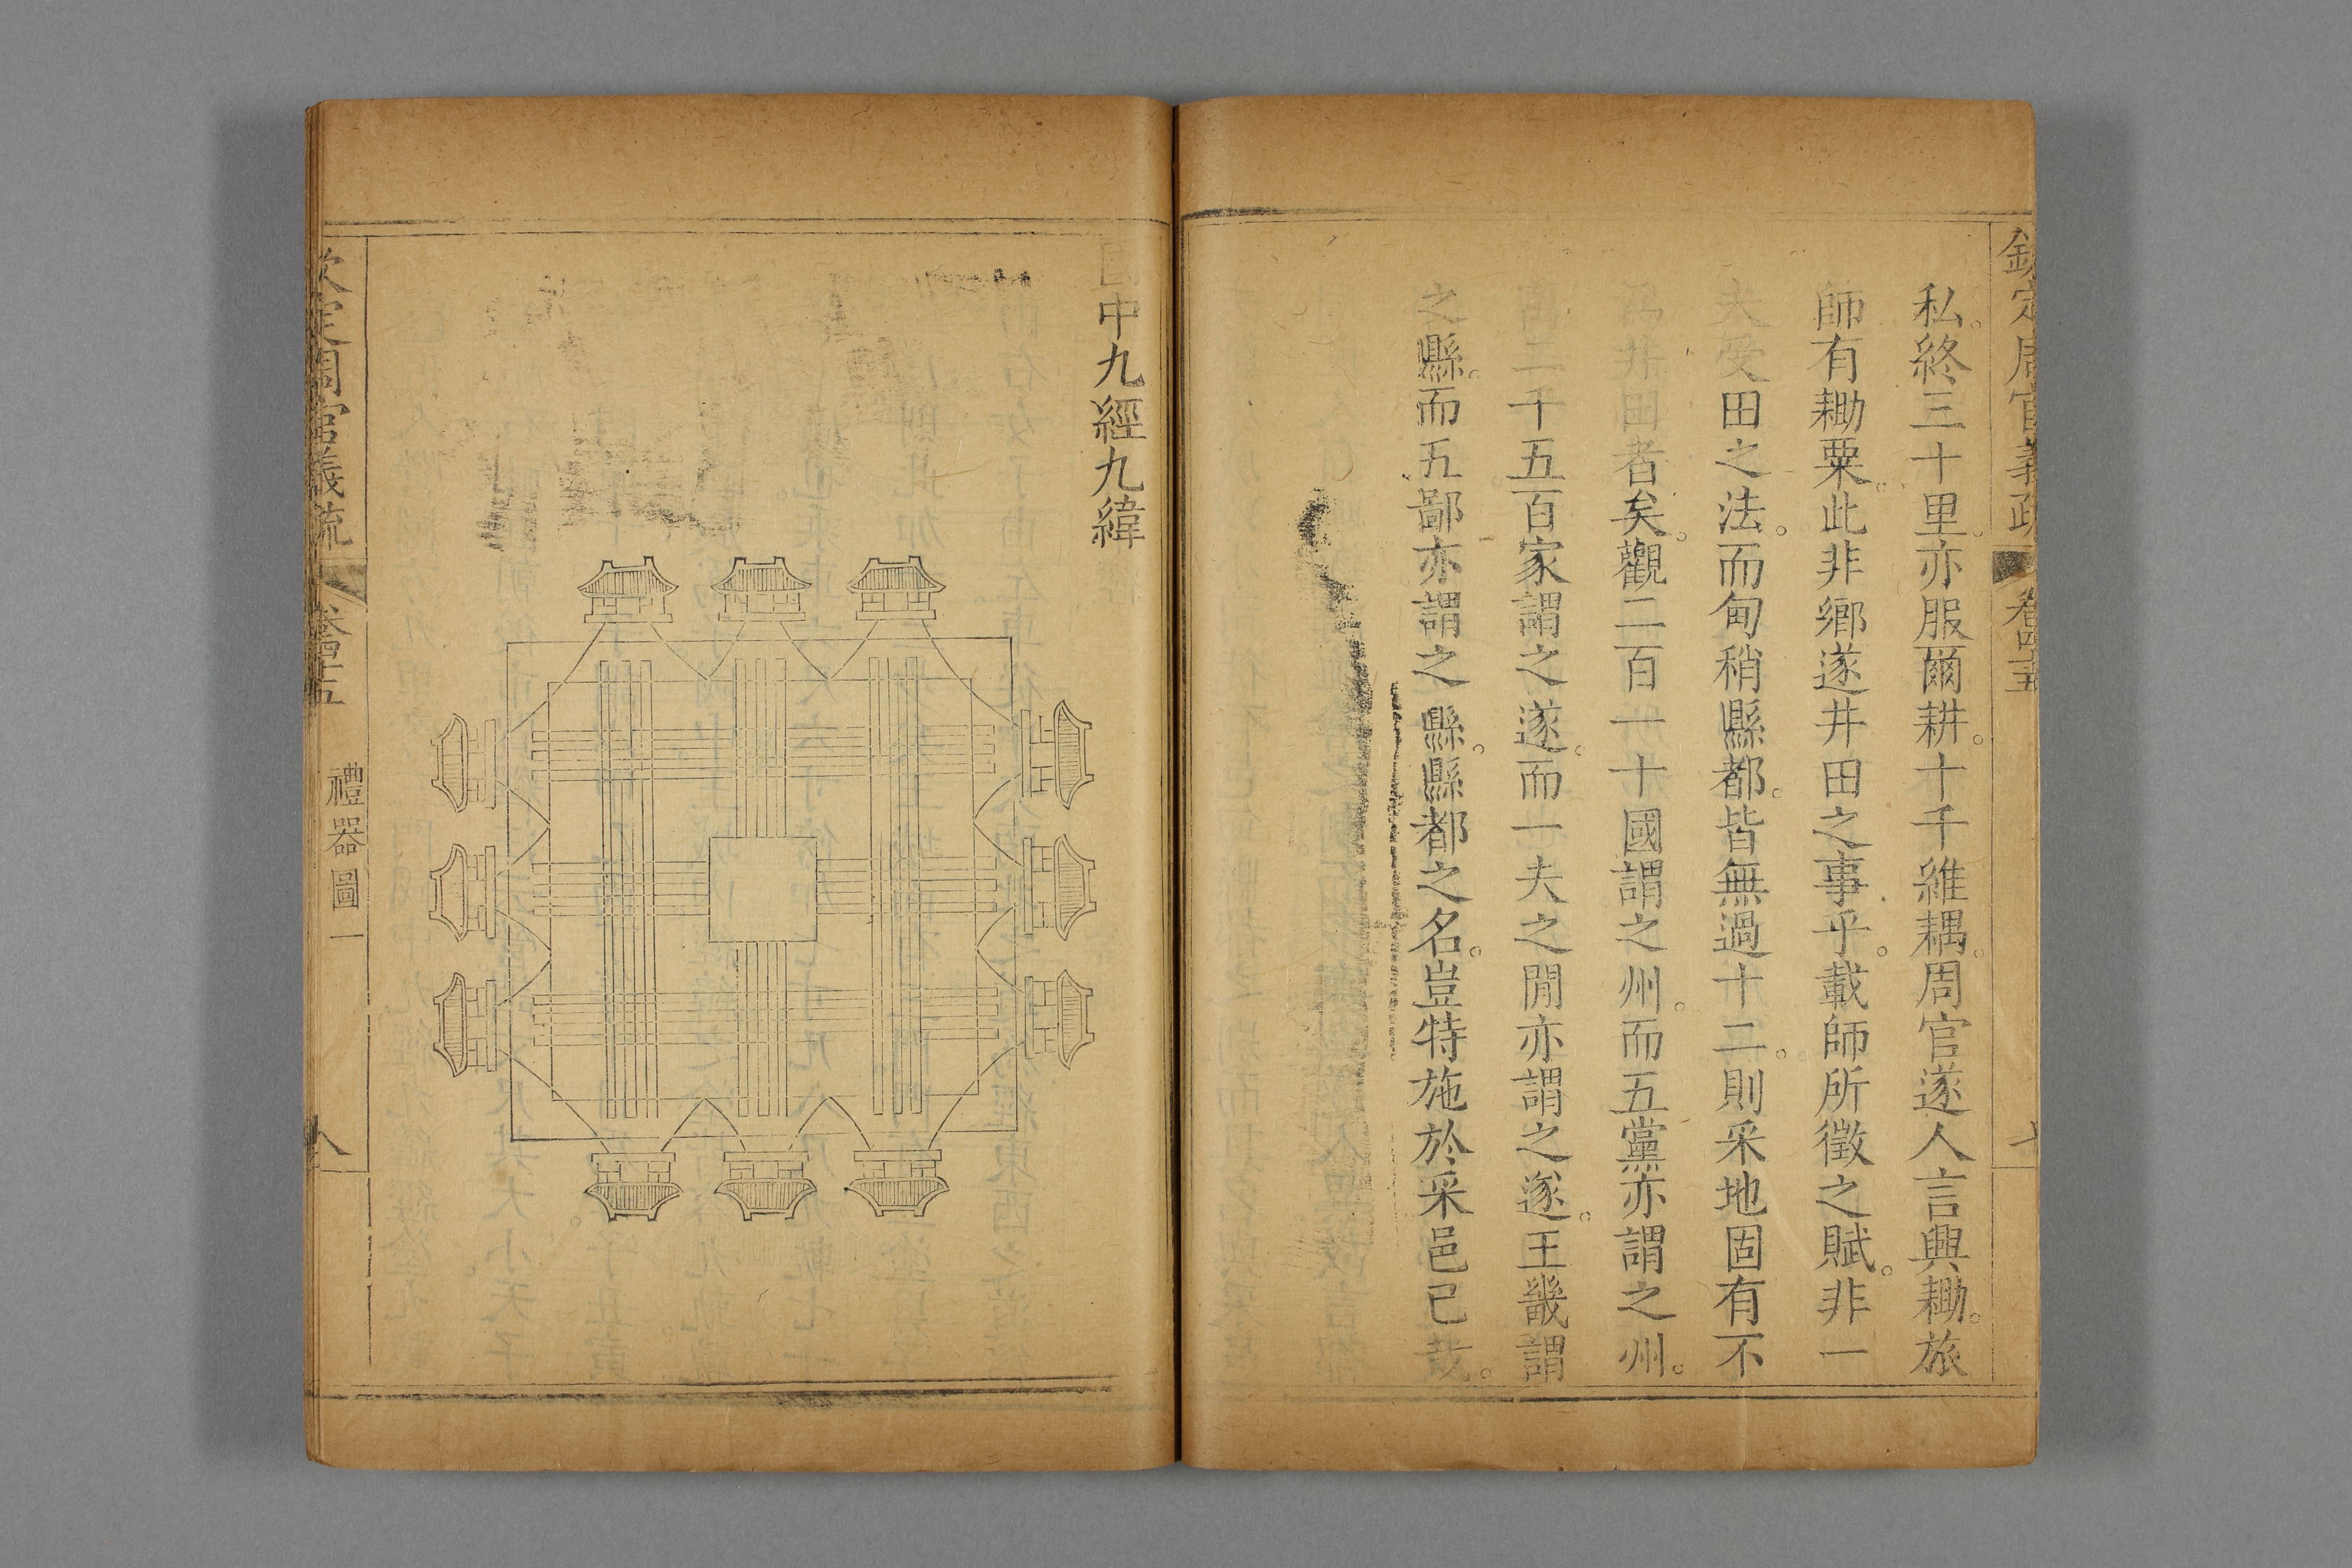 欽定周官義疏 卷四十五 七
私。終三十里。亦服爾耕。十千維耦。周官遂人言興耡。旅
師有耡粟。此非鄉遂井田之事乎。載師所徵之賦。非一
夫受田之法。而甸稍縣都。皆無過十二。則采地固有不
為井田者矣。觀二百一十國謂之州。而五黨亦謂之州。
萬二千五百家謂之遂。而一夫之閒亦謂之遂。王畿謂
之縣。而五鄙亦謂之縣。縣都之名。豈特施於采邑已哉。
國中九經九緯
欽定周官義疏 卷四十五 禮器圖一 八